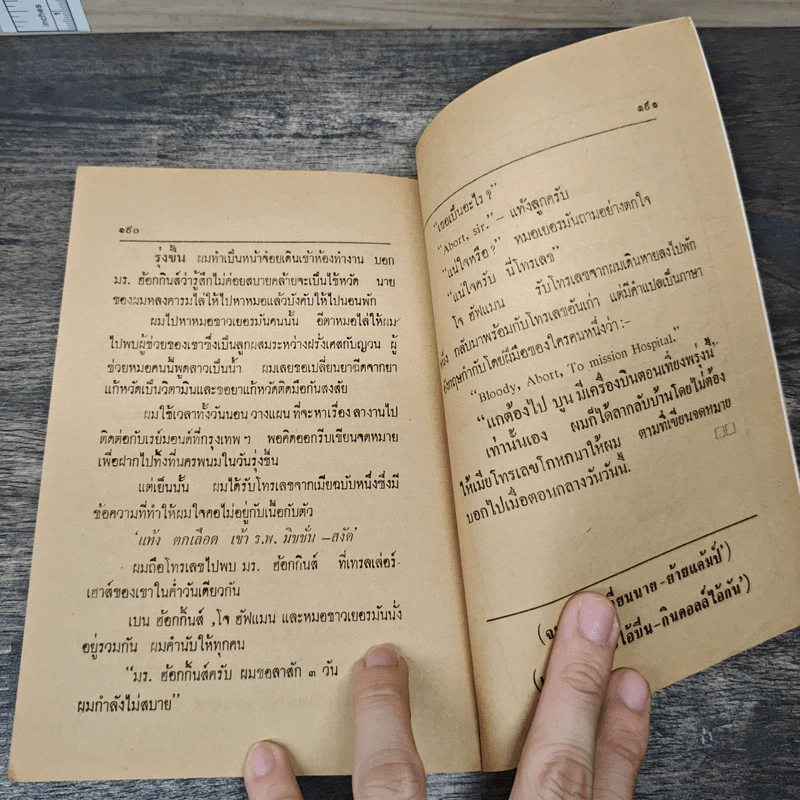 inches
1
๑๙๐
รุ่งขึ้น ผมทำเป็นหน้าจ๋อยเดินเข้าห้องทำงาน บอก
มร. ฮ้อกกินส์ว่ารู้สึกไม่ค่อยสบายคล้ายจะเป็นไข้หวัด นาย
ของผมหลงคารมไล่ให้ไปหาหมอแล้วบังคับให้ไปนอนพัก
ผมไปหาหมอชาวเยอรมันคนนั้น อีตาหมอไล่ให้ผม
ไปพบผู้ช่วยของเขาซึ่งเป็นลูกผสมระหว่างฝรั่งเศสกับญวน ผู้
ช่วยหมอคนนี้พูดลาวเป็นน้ำ ผมเลยขอเปลี่ยนยาฉีดจากยา
แก้หวัดเป็นวิตามินและขอยาแก้หวัดติดมือกันสงสัย
ผมใช้เวลาทั้งวันนอน วางแผน ที่จะหาเรื่อง ลางานไป
ติดต่อกับเรย์มอนด์ที่กรุงเทพฯ พอคิดออกรีบเขียนจดหมาย
เพื่อฝากไปทิ้งที่นครพนมในวันรุ่งขึ้น
แต่เย็นนั้น ผมได้รับโทรเลขจากเมียฉบับหนึ่งซึ่งมี
ข้อความที่ทำให้ผมใจคอไม่อยู่กับเนื้อกับตัว
‘แท้ง ตกเลือด เข้า ร.พ. มิชชั่น –สงัด’
ผมถือโทรเลขไปพบ มร. ฮ้อกกินส์ ที่เทรลเล่อร์
เฮาส์ของเขาในค่ำวันเดียวกัน
เบน ฮ้อกกิ้นส์ ,โจ ฮัฟแมน และหมอชาวเยอรมันนั่ง
อยู่รวมกัน ผมคำนับให้ทุกคน
“มร. ฮ้อกกิ้นส์ครับ ผมขอลาสัก ๓ วัน
ผมกำลังไม่สบาย”
๑๙๑
“เธอเป็นอะไร ?”
“Abort, sir.”— แท้งลูกครับ
“แน่ใจหรือ ?” หมอเยอรมันถามอย่างตกใจ
“แน่ใจครับ นี่โทรเลข”
โจ ฮัฟแมน รับโทรเลขจากผมเดินหายลงไปพัก
หนึ่ง กลับมาพร้อมกับโทรเลขอันเก่า แต่มีคำแปลเป็นภาษา
อังกฤษกำกับโดยฝีมือของใครคนหนึ่งว่า :-
“Bloody, Abort, To mission Hospital.”
“แกต้องไป บูน มีเครื่องบินตอนเที่ยงพรุ่งนี้”
เท่านั้นเอง ผมก็ได้ลากลับบ้านโดยไม่ต้อง
ให้เมียโทรเลขโกหกมาให้ผม ตามที่เขียนจดหมาย
บอกไปเมื่อตอนกลางวันวันนี้.
ี่ยนนาย -ย้ายแล้มป์’)
ไอ้ปืน–กินคอลล์ไอ้กัน’)